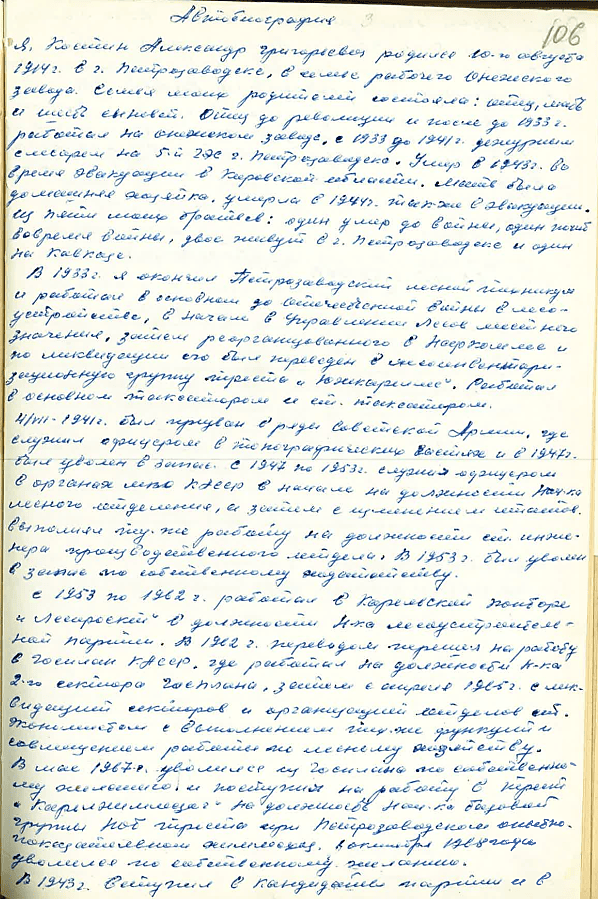 Автобиография
106
Я, Костин Александр Григорьевич родился 10-го августа
1914г. в г. Петрозаводске, в семье рабочего Онежского
завода. Семья моих родителей состояла: отец, мать
и шесть сыновей. Отец до революции и после до 1933г.
работал на онежском заводе, с 1933 до 1941г. дежурным
слесарем на 5-й ГЭС г. Петрозаводска. Умер в 1943г. во
время эвакуации в Кировской области. Мать была
домашняя хозяйка, умерла в 1944г. также в эвакуации.
Из пяти моих братьев: один умер до войны, один погиб
вовремя войны, двое живут в г. Петрозаводске и один
на Кавказе.
В 1933г. я окончил Петрозаводский лесной техникум
и работал в основном до отечественной войны в лесо-
устройстве, в начале в Управлении лесов местного
значения, затем реорганизованного в Наркомлес и
по ликвидации его был переведен в лесоинвентари-
зационную группу треста "Южкареллес". Работал
в основном таксатором и ст. таксатором.
4/VII-1941г. был призван в ряды Советской Армии, где
служил офицером в топографических частях и в 1947г.
был уволен в запас. С 1947 по 1953г. служил офицером
в органах МВД КАССР в начале на должности Нач-ка
лесного отделения, а затем с изменением штатов
выполнял ту-же работу на должности ст. инже-
нера производственного отдела. В 1953г. был уволен
в запас по собственному ходатайству.
С 1953 по 1962г. работал в Карельской конторе
"Леспроект" в должности Н-ка лесоустроитель-
ной партии. В 1962г. переводом перешел на работу
в Госплан КАССР, где работал на должности Н-ка
2-го сектора Госплана, затем с апреля 1965г. с лик-
видацией секторов и организацией отделов ст.
экономистом с выполнением тех-же функций и
совмещением работы по лесному хозяйству.
В мае 1967г. уволился из Госплана по собственно-
му желанию и поступил на работу в трест
"Кареллжилмеждог" на должность Нач-ка базовой
группы НОТ треста при Петрозаводском опытно-
показательном, в октябре 1968 года
уволился по собственному желанию.
В 1943г. вступил в кандидаты партии и в